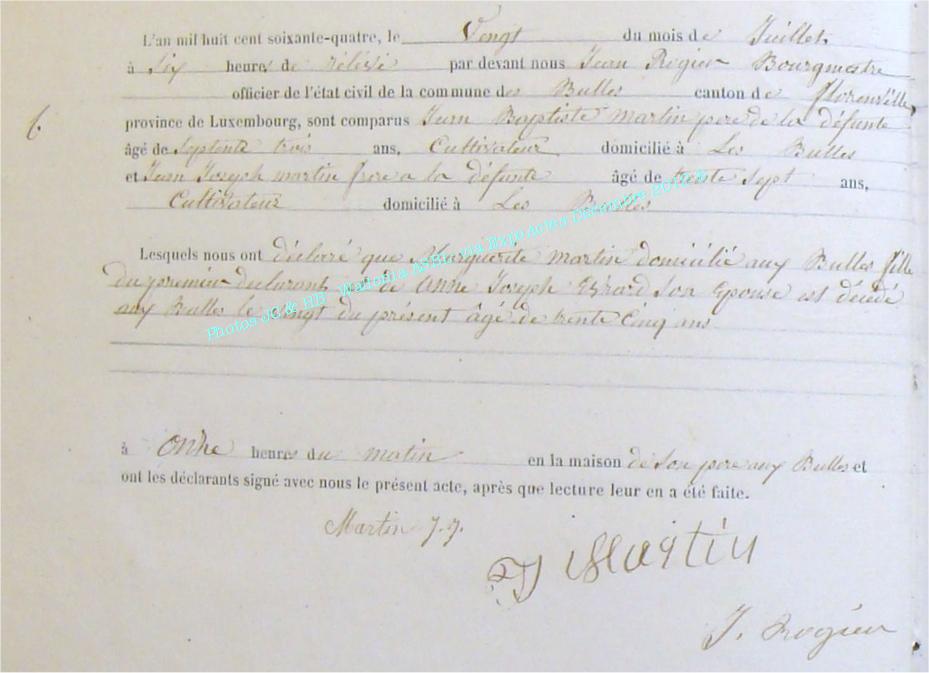 L'an mil huit cent soixante-quatre, le Vengt du mois de Juillet
à Six heures de rélévé par devant nous Jean Rogier Bourgmestre
officier de l'état civil de la commune des Bulles canton de florenville
6.
province de Luxembourg, sont comparus Jean Baptiste Martin pere de la défunte
âgé de Septente trois ans, Cultivateur domicilié à Les Bulles
et Jean Joseph martin frere a la défunte âgé de trente Sept ans,
Cultivateur domicilié à Les Bulles
Lesquels nous ont déclaré que Marguerite martin domicilié aux Bulles fille
du premier declarant et de Anne Joseph Evrard Son Epouse est décédé
aux Bulles le vingt du présent âgé de trente Cinq ans
Photos JC & HB Wallonia Arthonia Expo Actes Décembre
à Onhe heures du matin en la maison de Son pere aux Bulles et
ont les déclarants signé avec nous le présent acte, après que lecture leur en a été faite.
Martin J. J.
J Martin
J. Rogier